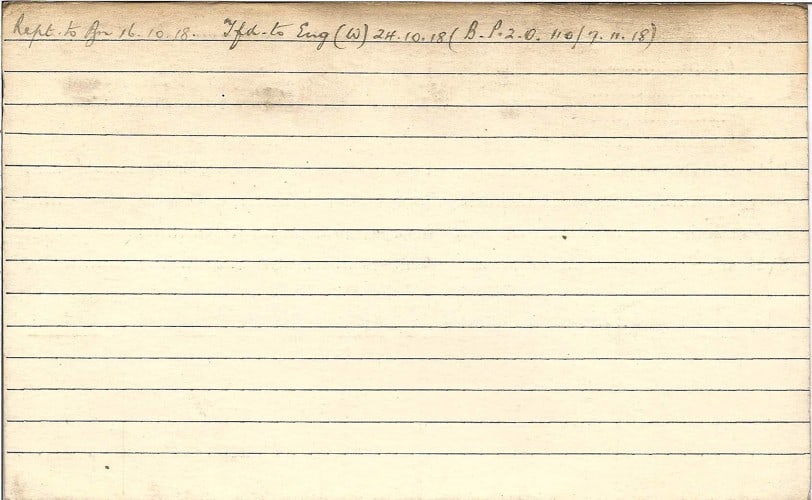 Rept. to Bn 16.10.18. Tfd. to Eng (W) 24.10.18 (B.P.2.O. 110/7.11.18)